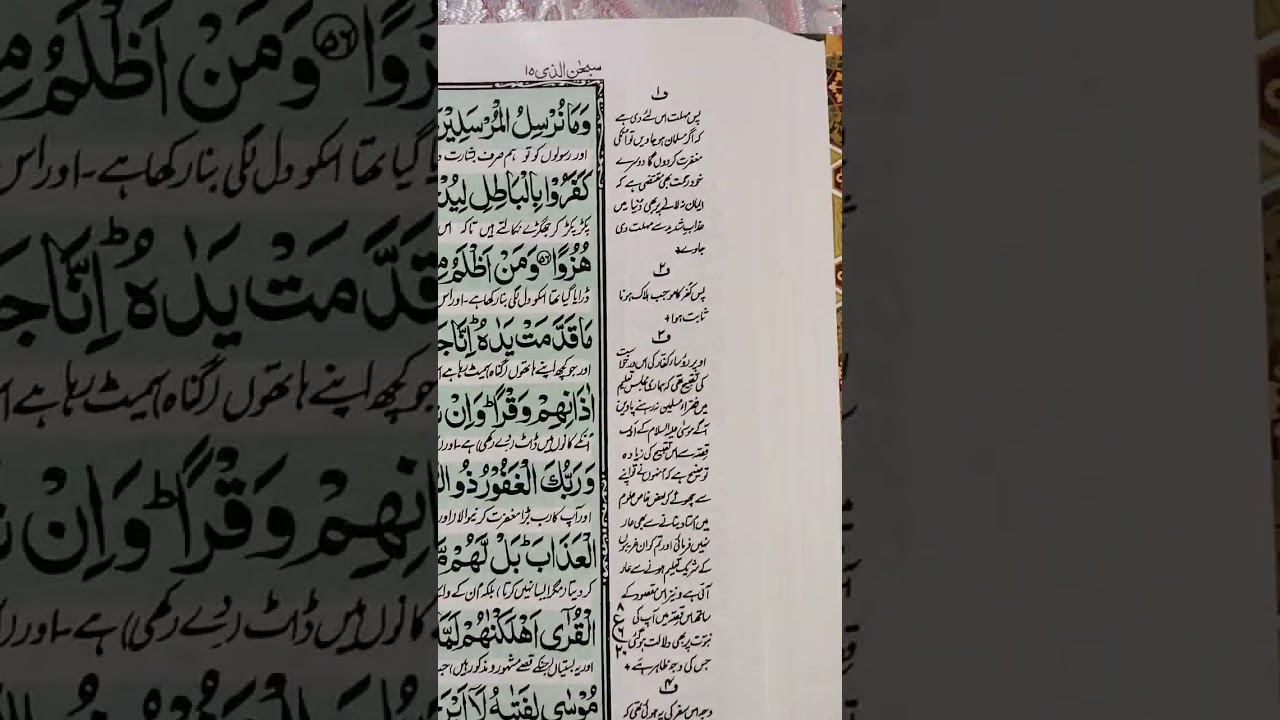 سبحٰن الذی ۱۵
وَمَا نُرْسِلُ الْمُرْسَلِیْنَ
اور رسولوں کو تو ہم صرف بشارت
كَفَرُوْا بِالْبَاطِلِ
پکڑ پکڑ کر جھگڑے نکالتے ہیں تاکہ اس
هُزُوًا ۵۶ وَمَنْ اَظْلَمُ
ڈرایا گیا تھا اسکو دل لگی بنا رکھا ہے۔ اور اس
مَا قَدَّمَتْ يَدٰهُ ؕ اِنَّا
اور جو کچھ اپنے ہاتھوں (گناہ) سمیٹ رہا ہے
اٰذَانِهِمْ وَقْرًا ؕ وَاِنْ
انکے کانوں میں ڈاٹ (دے رکھی) ہے۔ اور
وَرَبُّكَ الْغَفُوْرُ ذُو
اور آپ کا رب بڑا مغفرت کرنیوالا اور
الْعَذَابَ ؕ بَلْ لَّهُمْ
کر دیتا (مگر ایسا نہیں کرتا) بلکہ ان کے
الْقُرٰٓى اَهْلَكْنٰهُمْ لَمَّا
اور یہ بستیاں (جنکے قصے مشہور و مذکور ہیں)
مُوْسٰى لِفَتٰىهُ لَاۤ
ف۱
پس مہلت اس لئے دی ہے
کہ اگر مسلمان ہو جاویں تو انکی
مغفرت کر دوں گا دوسرے
خود رحمت بھی مقتضی ہے کہ
ایمان نہ لانے پر بھی دنیا میں
عذاب شدید سے مہلت دی
جاوے
ف۲
پس کفر کا موجب ہلاک ہونا
ثابت ہوا
ف۳
اوپر رؤساء کفار کی اس درخواست
کی تقبیح تھی کہ ہماری مجلس تعلیم
میں فقراء مسلمین نہ رہنے پاویں
آگے موسیٰ علیہ السلام کے ایک
قصہ سے اس تقبیح کی زیادہ
توضیح ہے کہ انہوں نے تو اپنے
سے چھوٹے کو بعض خاص علوم
میں استاد بنانے سے بھی عار
نہیں فرمائی اور تم کو ان غریبوں
کے شریک تعلیم ہونے سے عار
آتی ہے و نیز اس مقصود کے
ساتھ اس قصہ میں آپ کی
نبوت پر بھی دلالت ہو گئی
جس کی وجہ ظاہر ہے
ف۴
وجہ اس سفر کی یہ ہوئی تھی کہ